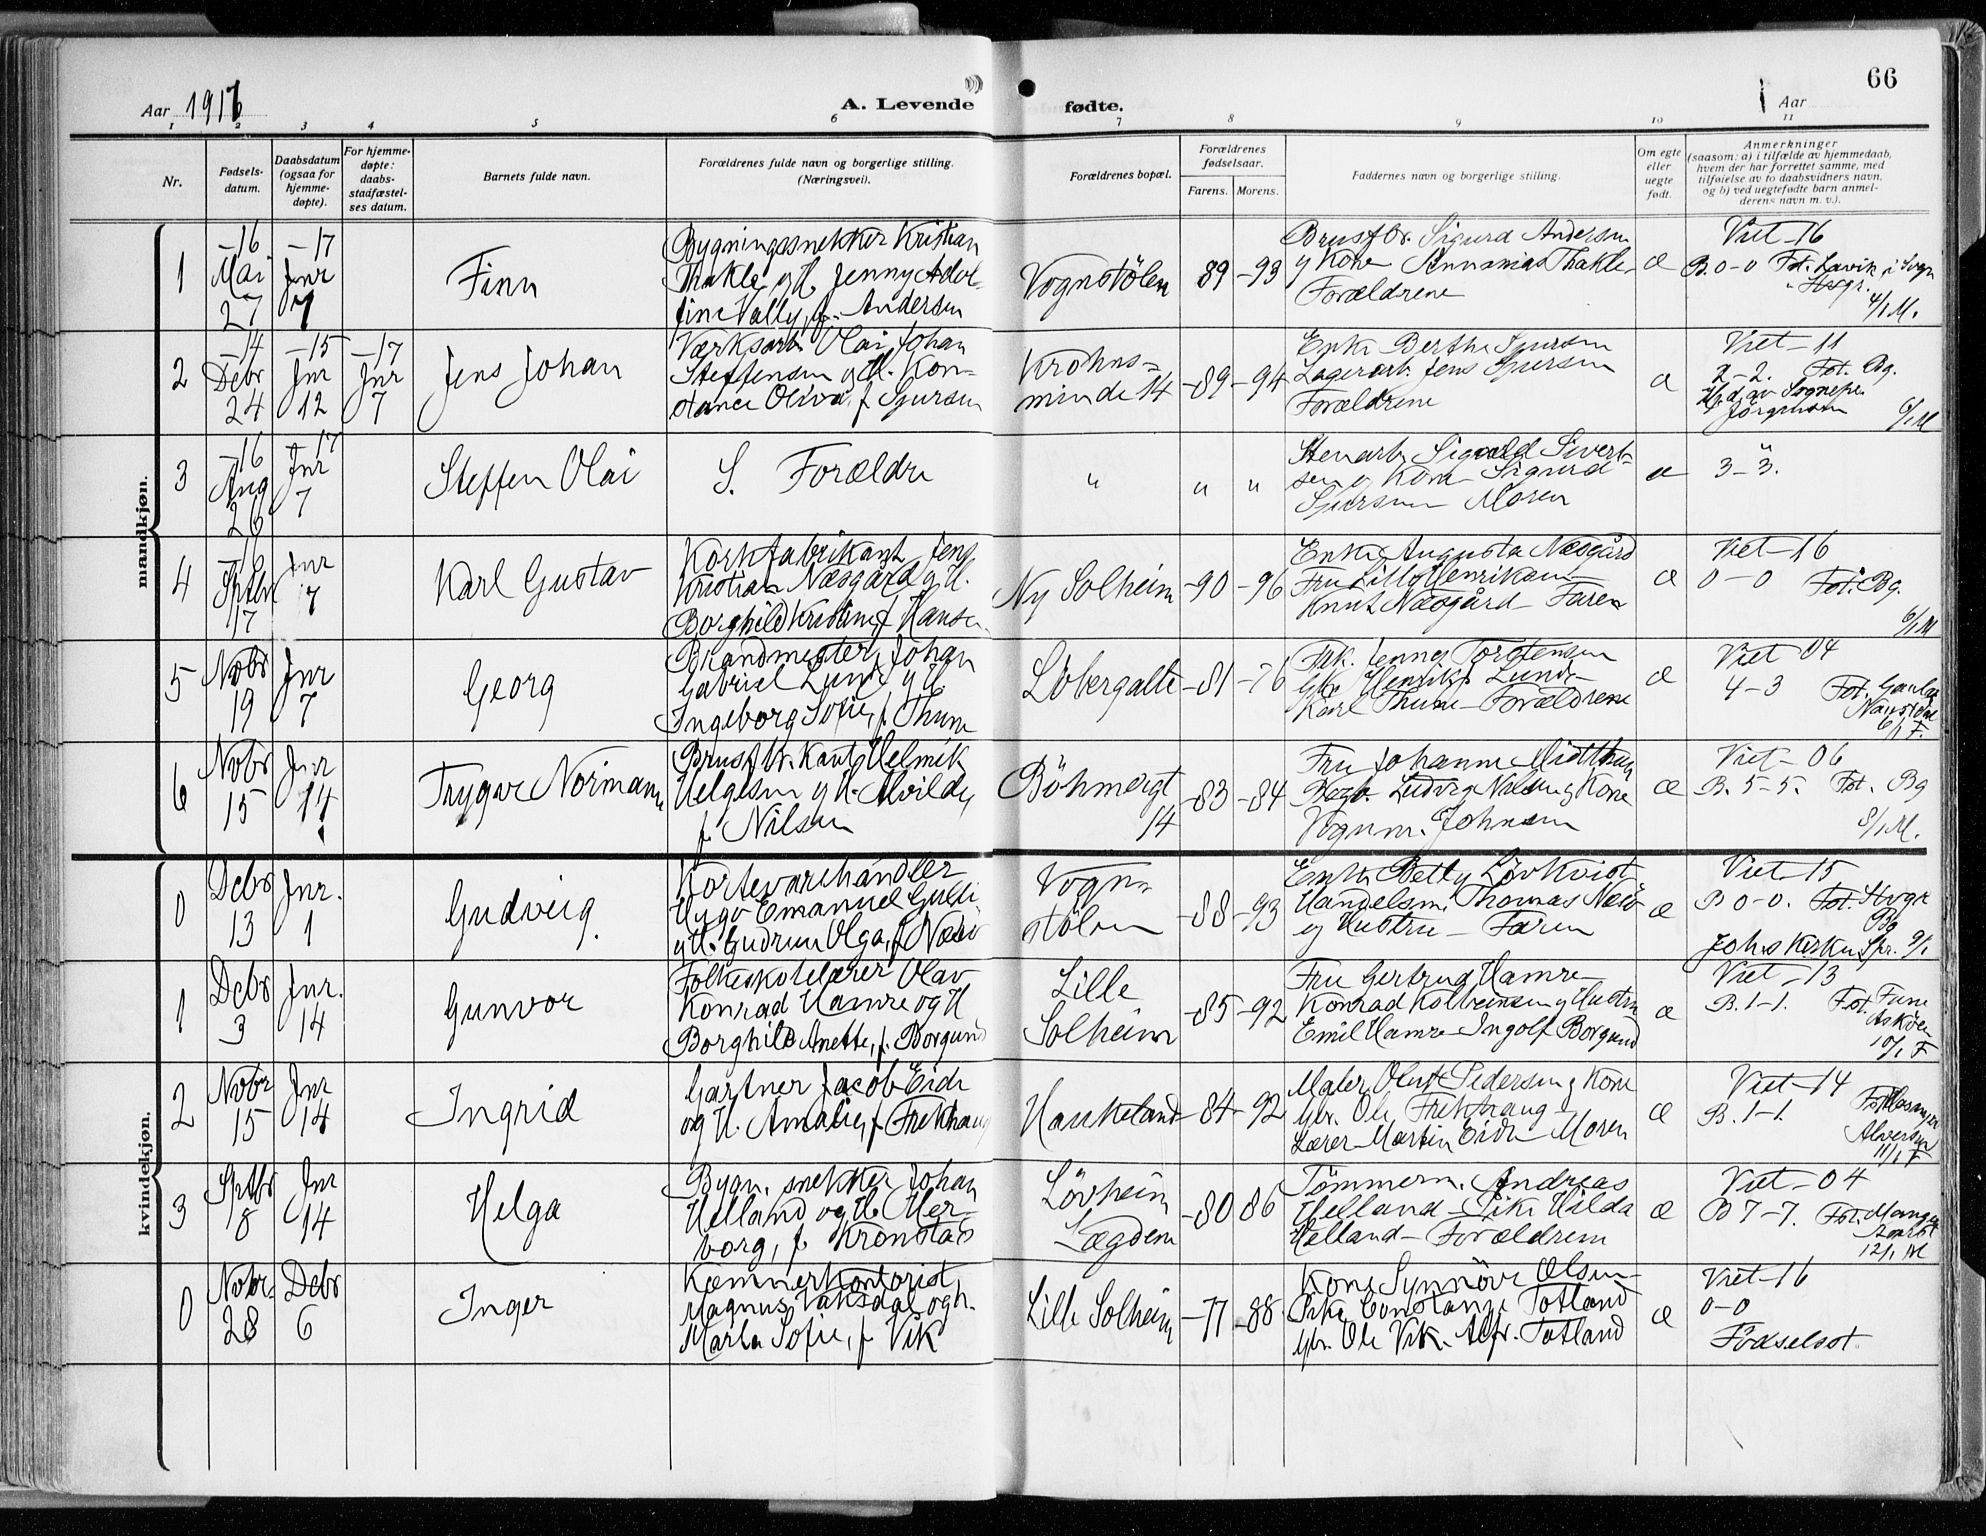 66
Aar 1916
A. Levende fødte.
Aar
1 2 3 4 5 6 7 8 9 10 11
Nr.
Fødsels-
datum.
Daabsdatum
(ogsaa for
hjemme-
døpte).
For hjemme-
døpte:
daabs-
stadfæstel-
ses datum.
Barnets fulde navn.
Forældrenes fulde navn og borgerlige stilling.
(Næringsvei).
Forældrenes bopæl.
Forældrenes
fødselsaar.
Farens. Morens.
Faddernes navn og borgerlige stilling.
Om egte
eller
uegte
født.
Anmerkninger
(saasom: a) i tilfælde av hjemmedaab,
hvem der har forrettet samme, med
tilføielse av to daabsvidners navn,
og b) ved uegtefødte barn anmel-
derens navn m. v.).
mandkjøn.
1
-16
Mai
27
-17
Jnr
7
Finn
Bygningssnekker Kristian
Thakle og H. Jenny Adol-
fine Vally, f. Andersen
Vognstölen
89 -93
Brusfbr. Sigurd Andersen
og Kone Annanias Thakle
Forældrene
æ
Viet -16
B. 0-0 Fot. Lavik i Sogn
4/1 M.
2
-14
Debr
24
-15
Jnr
12
-17
Jnr
7
Jens Johan
Værksarb. Olai Johan
Steffensen og H. Kon-
stance Oliva, f. Sjursen
Krohns-
minde 14
-89 -94
Enke Berthe Sjursen
Lagerarb. Jens Sjursen
Forældrene
æ
Viet -11
2-2. Fot. Bg.
Hj.d. av Sognepr.
Jörgensen
6/1 M
3
-16
Aug
26
-17
Jnr
7
Steffen Olai
S. Forældre
" " "
Stenarb. Sigvald Sivert-
sen og Kone Sigurd
Sjursen Moren
æ
"
3-3.
4
-16
Sptbr
17
Jnr
7
Karl Gustav
Korkfabrikant Jens
Kristian Næsgård og H.
Borghild Kristine, f. Hansen
Ny Solheim
-90 -96
Enke Augusta Næsgård
Fru Lilly Henriksen
Knut Næsgård - Faren
æ
Viet -16
0-0 Fot. Bg.
6/1 M
5
Novbr
19
Jnr
7
Georg
Brandmester Johan
Gabriel Lund og H.
Ingeborg Sofie, f. Thune
Löbergalle
-81 -76
Frk. Jenny Torstensen
Gbr. Henrik Lund
Karl Thune - Forældrene
æ
Viet 04
4-3 Fot. Gaular
Naustdal
6/1 F.
6
Novbr
15
Jnr
14
Trygve Normann
Brusfbr. Kant Helmik
Helgesen og H. Alvilde,
f. Nilsen
Böhmergt
14
-83 -84
Fru Johanne Midtthun
Bagb. Ludvig Nilsen og Kone
Vognm. Johnsen
æ
Viet -06
B. 5-5. Fot. Bg
8/1 M.
kvindekjøn.
0
Debr
13
Jnr.
1
Gudveig.
Kortevarehandler
Hygo Emanuel Gulli
og H. Gudrun Olga, f. Næsö
Vogn-
stölen
-88 -93
Enke Betty Lövkvist
Handelsm. Thomas Næsö
og Hustru - Faren
æ
Viet 15
B 0-0. Fot. Hvgr
Bg
Johs Kirken Spr. 9/1
1
Debr
3
Jnr.
14
Gunvor
Folkeskolelærer Olav
Konrad Hamre og H
Borghild Anette, f. Borgund
Lille
Solheim
-85 -92
Fru Gertrud Hamre
Konrad Kolbeinsen og Hustru
Emil Hamre - Ingolf Borgund
æ
Viet -13
B. 1-1. Fot. Fane
Asköen
10/1 F
2
Novbr
15
Jnr
14
Ingrid
Gartner Jacob Eide
og H. Amalie, f. Frekhaug
Haukeland
-84 -92
Maler Oluf Pedersen og Kone
Gbr. Ole Frekhaug
Lærer Martin Eide - Moren
æ
Viet -14
B. 1-1.
Alversun
11/1 F
3
Sptbr
18
Jnr
14
Helga
Bygn. snekker Johan
Helland og H. Her-
borg, f. Kronstad
Lövheim
Lægdene
-80 86
Tömmerm. Andreas
Helland - Pike Hilda
Helland - Forældrene
æ
Viet -04
B 7-7. Fot. Manger
12/1 M
0
Novbr.
28
Debr
6
Inger
Kæmnerkontorist
Magnus Vaksdal og h.
Marta Sofie, f. Vik
Lille Solheim
-77 -88
Kone Synnöve Olsen
Pike Constanze Totland
Gbr. Ole Vik. Alfr. Totland
æ
Viet -16
0-0
Födselsst.